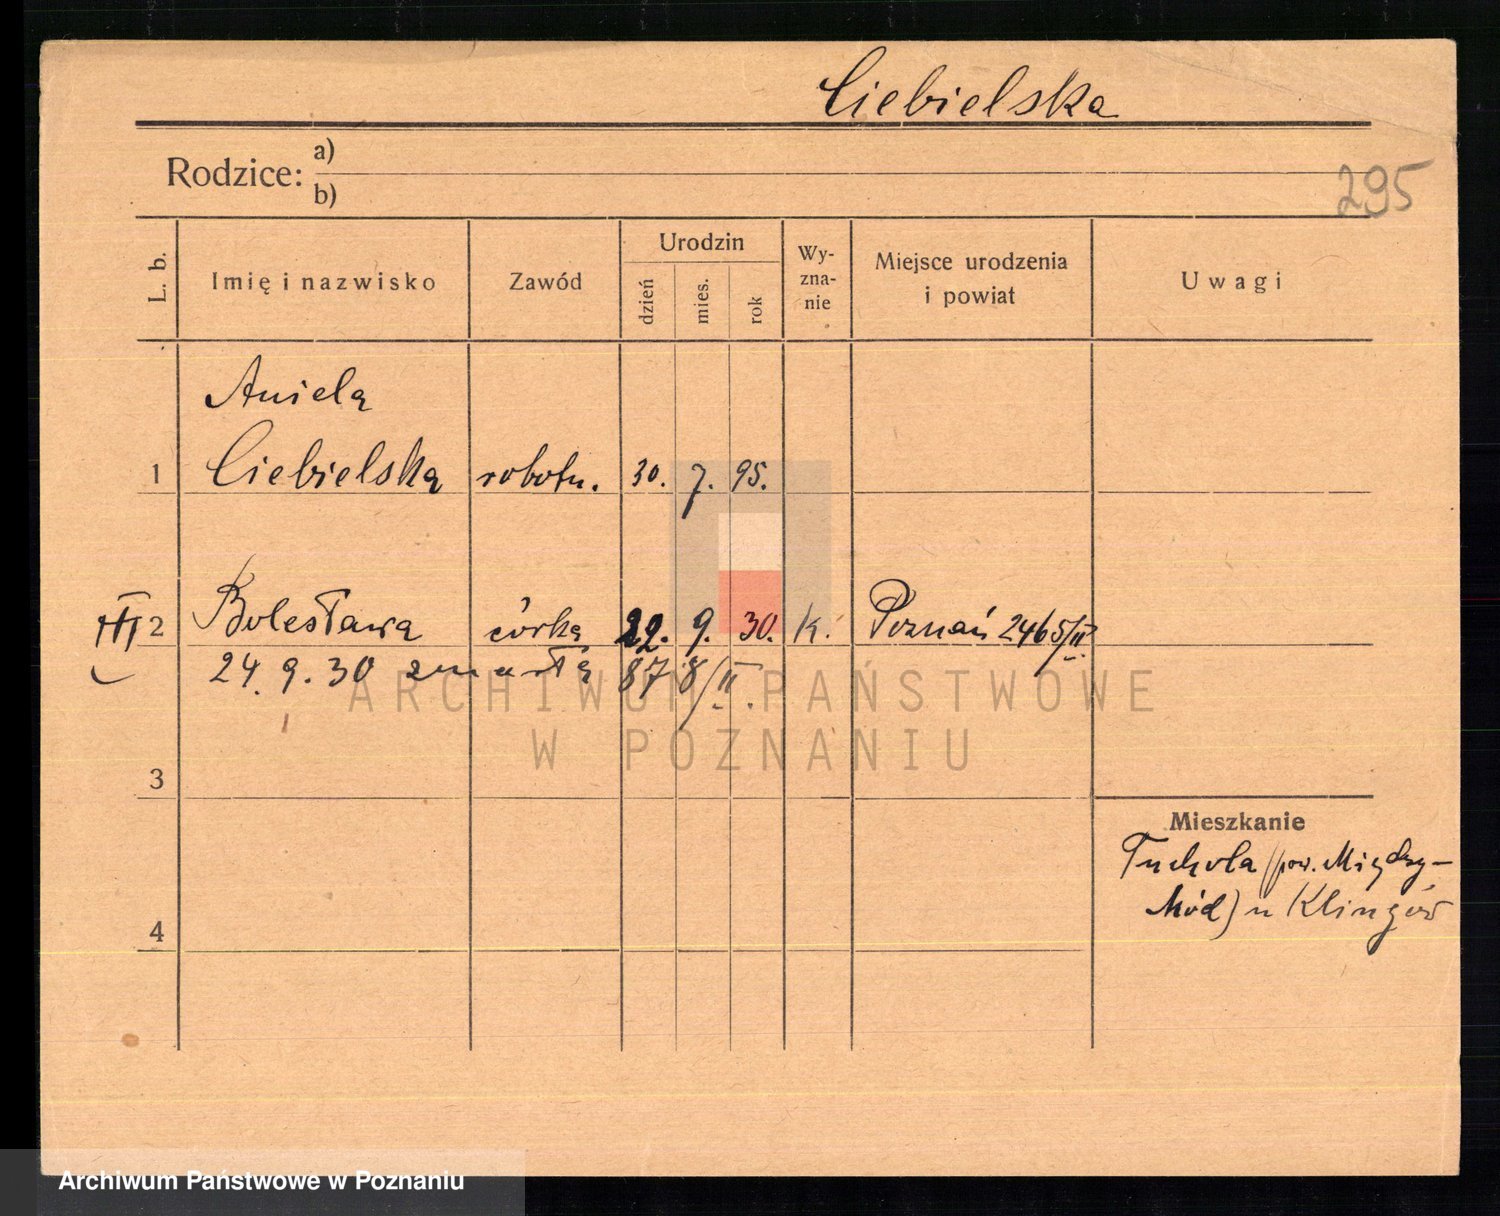 Ciebielska
Rodzice: a)
b)
295
L. b.
Imię i nazwisko
Zawód
Urodzin
dzień
mies.
rok
Wy-
zna-
nie
Miejsce urodzenia
i powiat
Uwagi
Aniela
1 Ciebielska robotn. 30. 7. 95.
III 2 Bolesława córka 22. 9. 30. k. Poznań 2465/II
24. 9. 30 zmarła 878/II.
3
Mieszkanie
Tuchola (pow. Między-
chód) u Klingów
4
ARCHIWUM PAŃSTWOWE
W POZNANIU
Archiwum Państwowe w Poznaniu